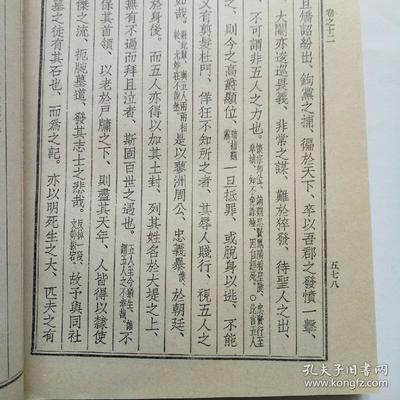 卷之十二
五七八
且矯詔紛出、鉤黨之捕、徧於天下、卒以吾郡之發憤一擊、
大閹亦逡巡畏義、非常之謀、難於猝發、待聖人之出、
不可謂非五人之力也。
則今之高爵顯位、一旦抵罪、或脫身以逃、不能
又有剪髮杜門、佯狂不知所之者、其辱人賤行、視五人之
如哉。是以蓼洲周公、忠義暴於朝廷、
於身後。而五人亦得以加其土封、列其姓名於大堤之上、
無有不過而拜且泣者、斯固百世之遇也。不
保其首領、以老於戶牖之下、則盡其天年、人皆得以隸使
傑之流、扼腕墓道、發其志士之悲哉。故予與同社
墓之徒有其石也、而爲之記。亦以明死生之大、匹夫之有
孔夫子旧书网